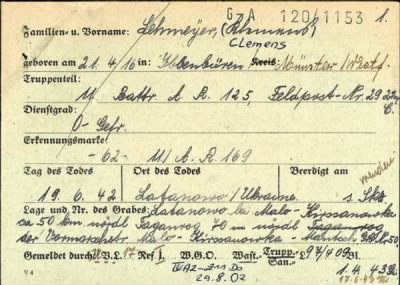 G-A 120/1153 1.
Familien- u. Vorname: Lehmeyer, (Klemens)
Clemens
geboren am 21.4.16 in: Ibbenbüren Kreis: Münster/Westf.
Truppenteil:
11. Battr. A. R. 125, Feldpost-Nr. 292
Dienstgrad:
O-Gefr.
Erkennungsmarke:
-62- 11/ A. R. 169
Tag des Todes Ort des Todes Beerdigt am
19.6.42 Latanowo/Ukraine s. Skz.
Lage und Nr. des Grabes: Latanowo bei Malo-Kirssanowka
ca 50 km nördl Taganrog 70 m nördl Taganrog
der Vormarschstr Malo-Kirssanowka-
Gemeldet durch: Ref. I. W.G.O. Wast- Trupp.- San.- L 94/409 Bl.
IIA2-211 Do 1.4.43
29.8.02